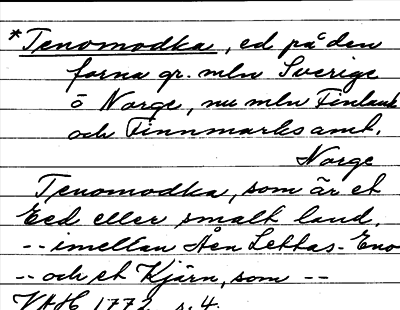 *Tenomodka, ed på den
forna gr. mln Sverige
o Norge, nu mln Finland
och Finnmarks amt.
Norge
Tenomodka, som är et
Eed eller smalt land.
-- imellan Åen Lettas-Eno
-- och et Kjärn, som --
VAH 1772 s. 4.